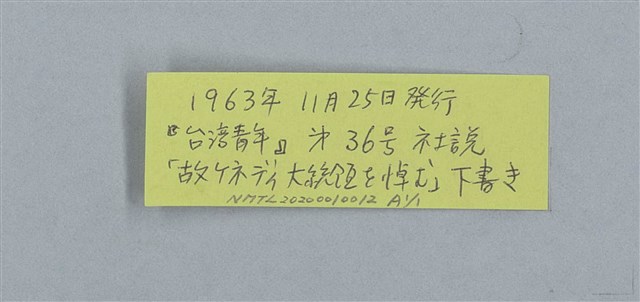 1963年 11月25日発行
『台湾青年』 㐧36号 社説
「故ケネディ大統領を悼む」下書き
NMTL20200010012 A1/1